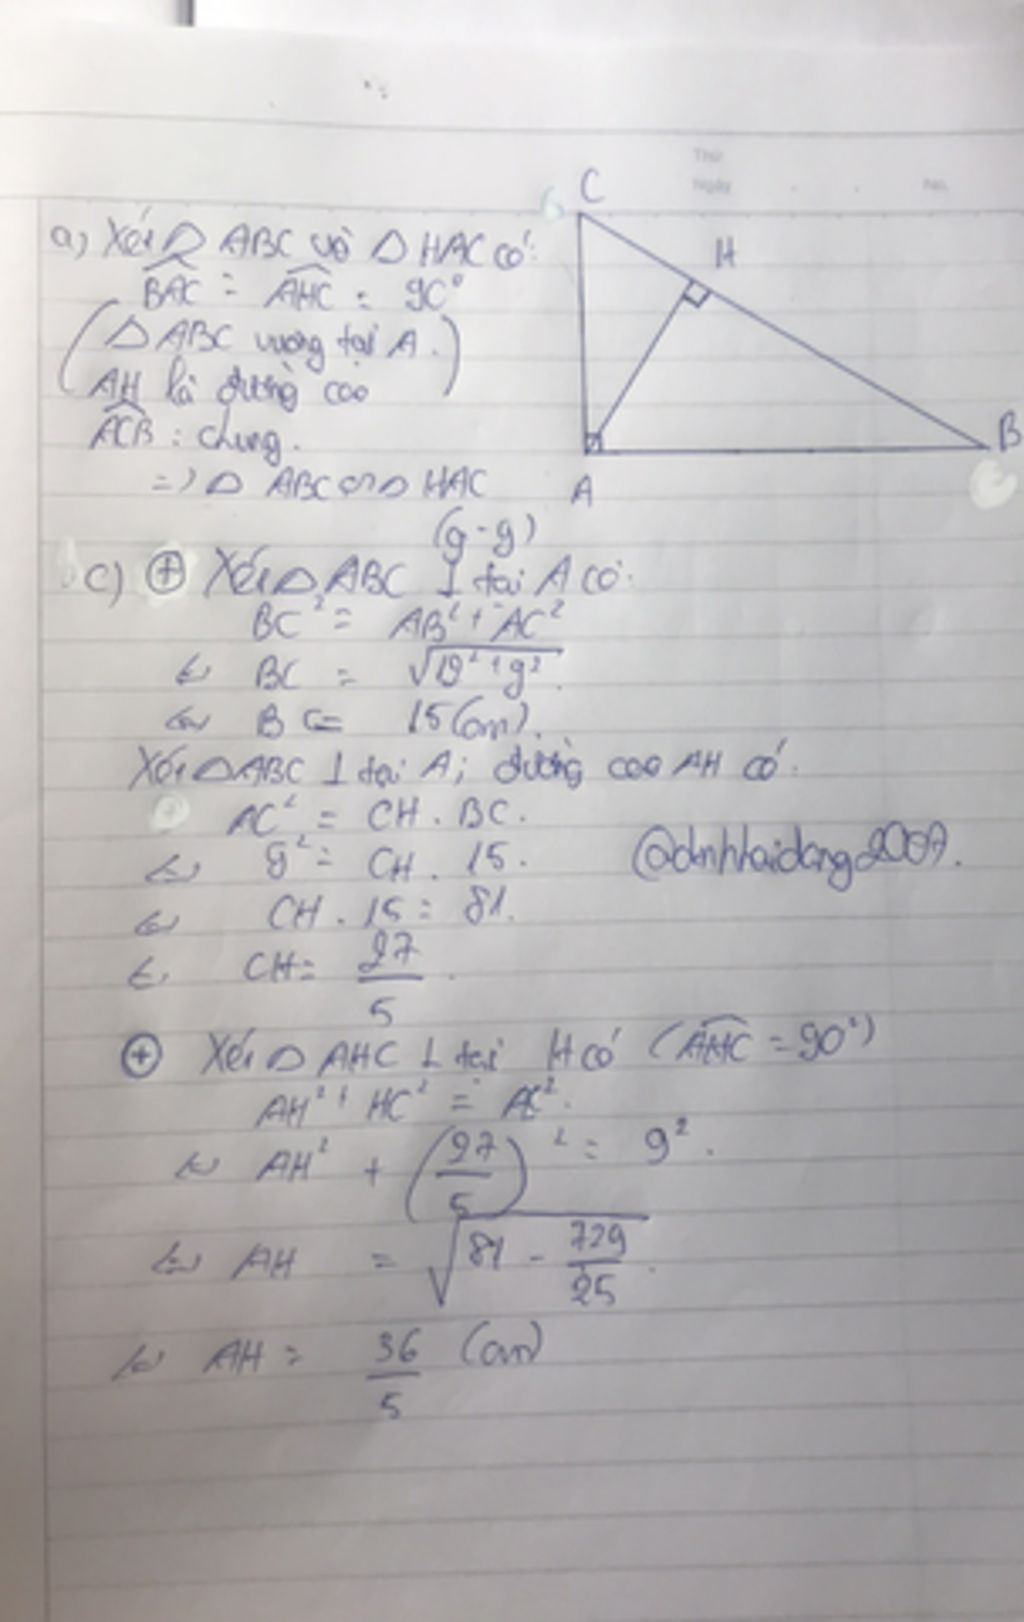 Thứ
Ngày No.
C
H
B
A
a) Xét Δ ABC và Δ HAC có:
BAC = AHC = 90°
(Δ ABC vuông tại A.
AH là đường cao)
ACB : chung.
=> Δ ABC ∽ Δ HAC
(g-g)
c) ⊕ Xét Δ ABC ⊥ tại A có:
BC² = AB² + AC²
⇔ BC = √12² + 9².
⇔ BC = 15 (cm).
Xét Δ ABC ⊥ tại A; đường cao AH có:
AC² = CH . BC.
⇔ 9² = CH . 15.
@dnhhaidang2007.
⇔ CH . 15 = 81.
⇔ CH = 27/5.
⊕ Xét Δ AHC ⊥ tại H có (AHC = 90°)
AH² + HC² = AC².
⇔ AH² + (27/5)² = 9².
⇔ AH = √81 - 729/25.
⇔ AH = 36/5 (cm)